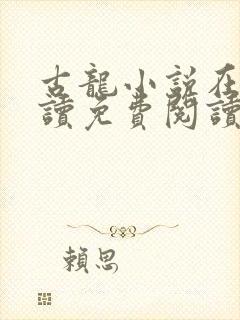 古龍小說在
讀免費閱讀
賴思